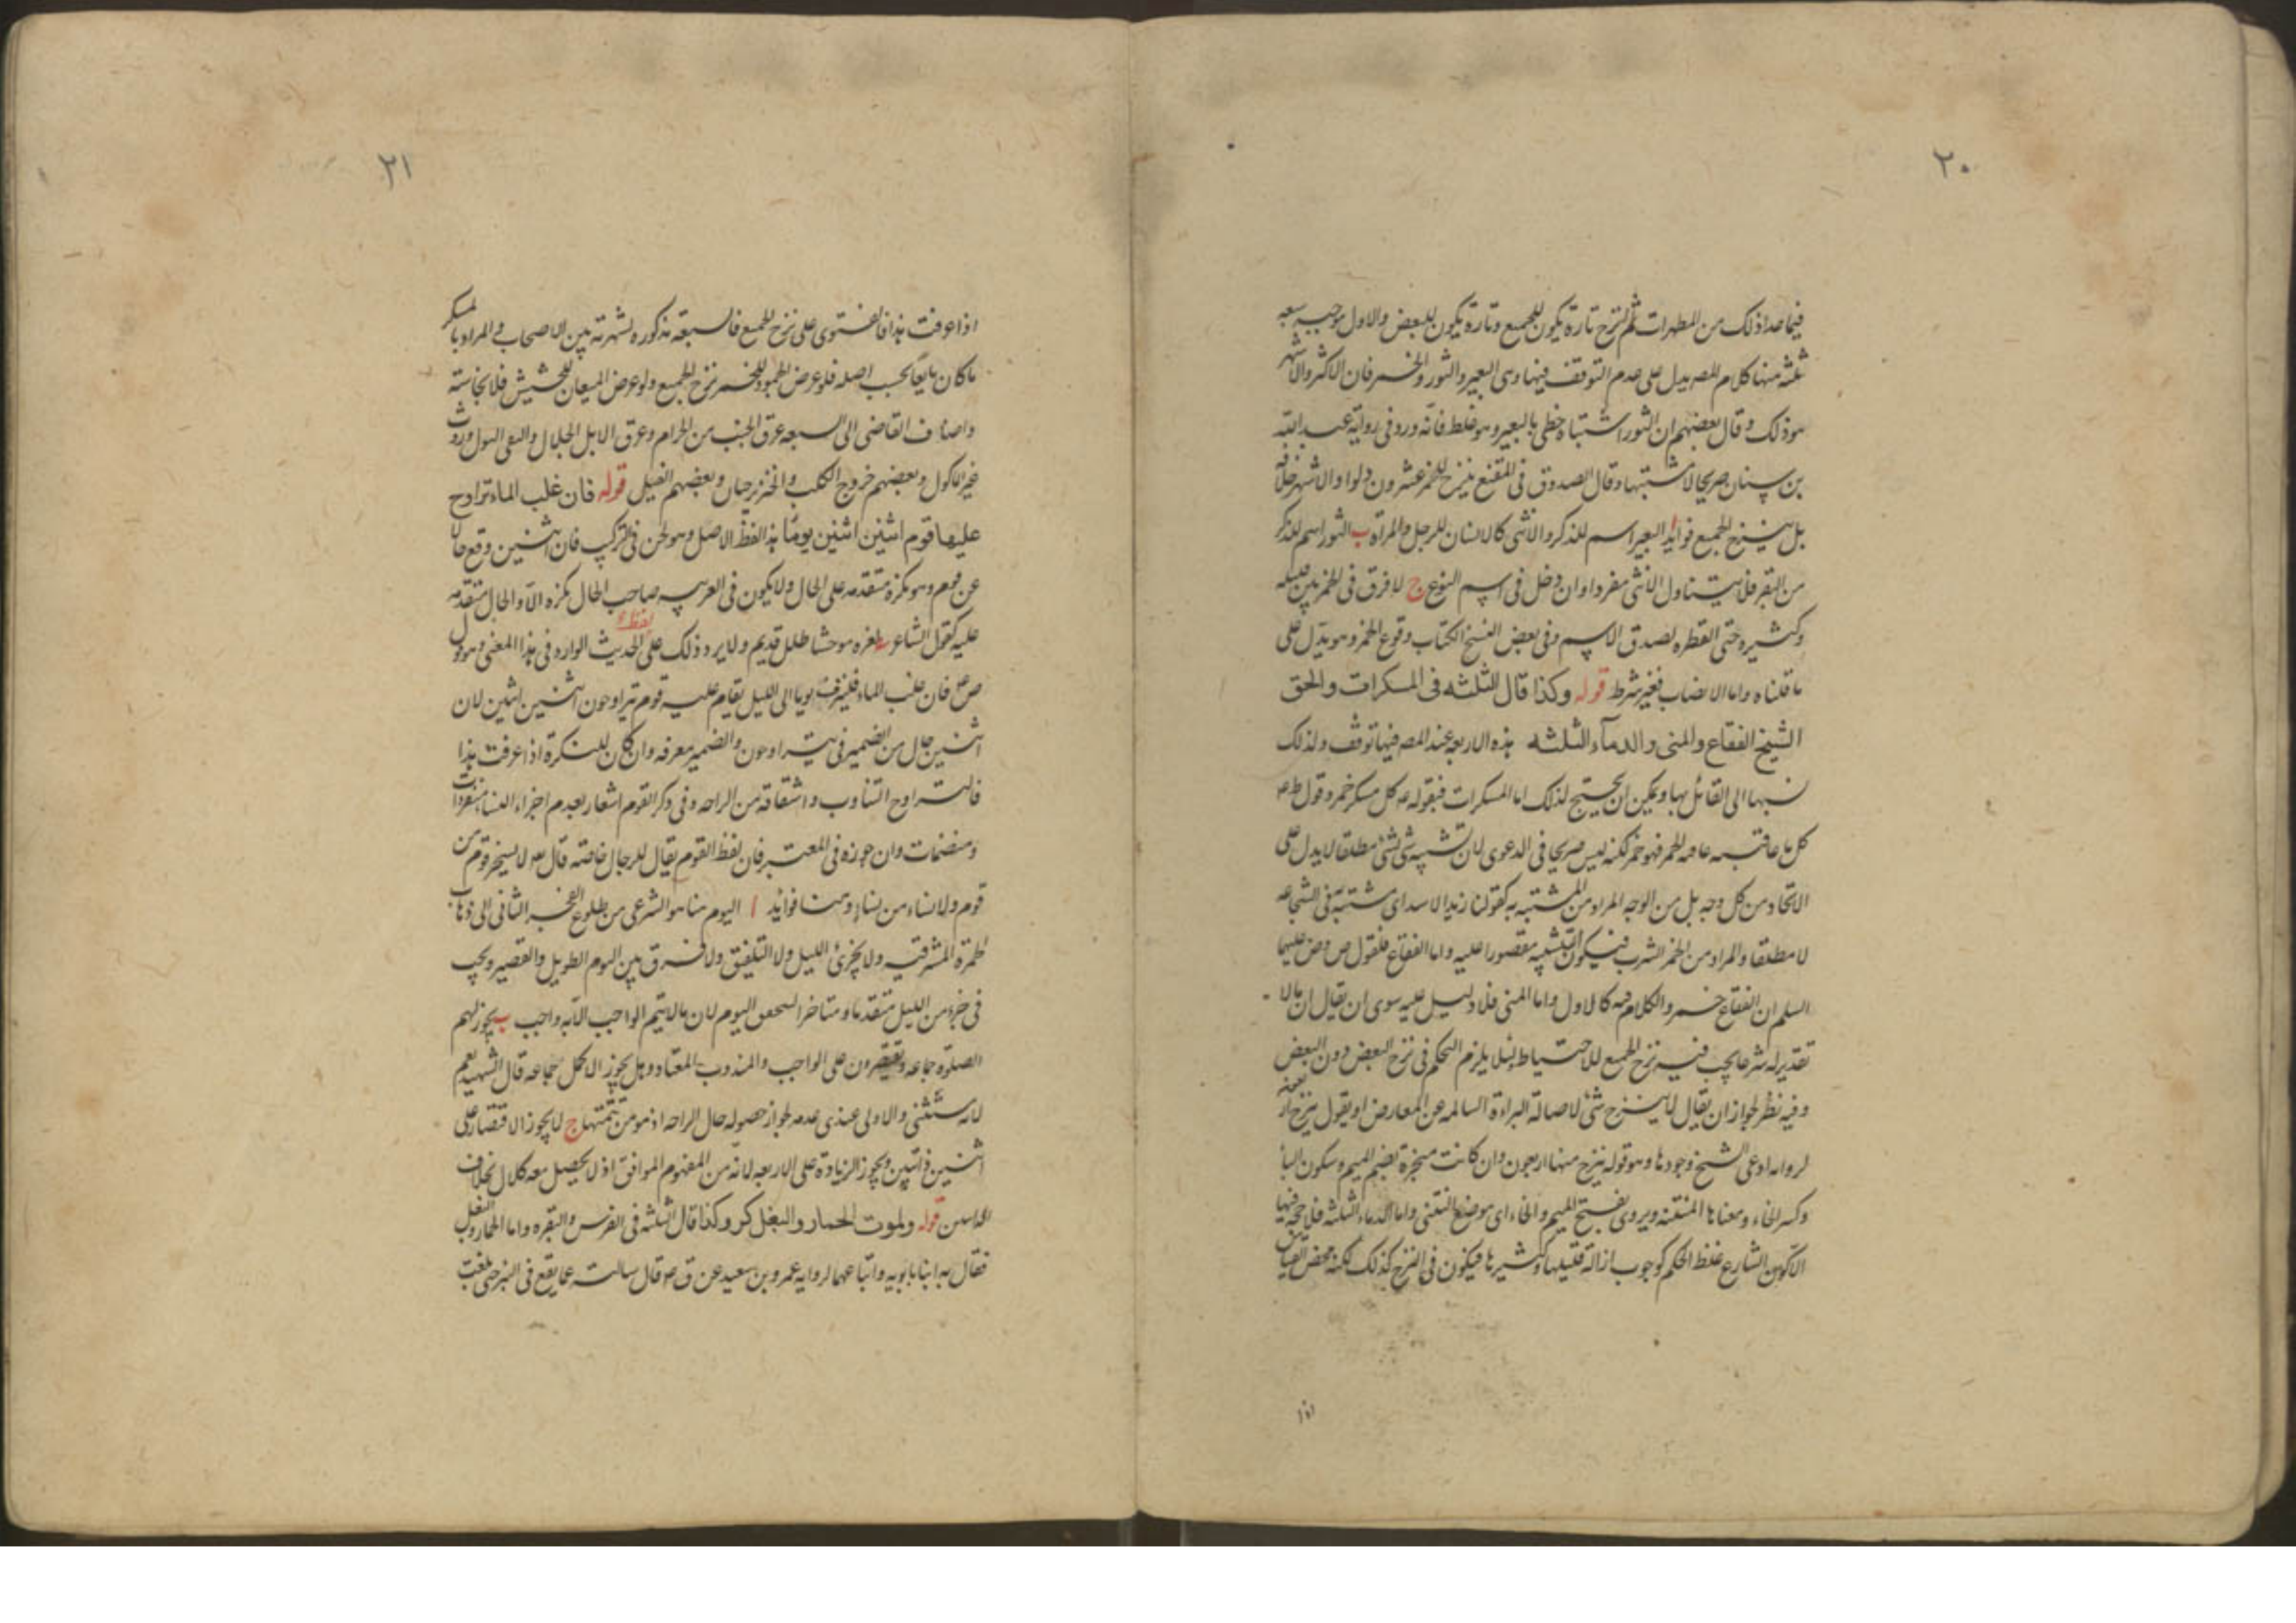 ٢٠
فيما عدا ذلك من المطهرات ثم النزح تارة يكون للجميع وتارة يكون للبعض والاول موجبه سبعه
ثلثة منها كلام المص يدل على عدم التوقف فيها وهى البعير والثور والخمر فان الاكثر والاشهر
هو ذلك وقال بعضهم ان الثور اشتباه خطى بالبعير وهو غلط فانه ورد فى رواية عبد الله
بن سنان صريحا لا مشتبها وقال الصدوق فى المقنع ينزح للخمر عشرون دلوا والاشهر خلافه
بل ينزح الجميع فوائد ا البعير اسم للذكر والانثى كالانسان للرجل والمرأة ب الثور اسم للذكر
من البقر فلا يتناول الانثى مفردا وان دخل فى اسم النوع ج لا فرق فى الخمر بين قليله
وكثيره حتى القطره لصدق الاسم وفى بعض النسخ الكتاب وقوع الخمر وهو يدل على
ما قلناه واما الانصاب فغير شرط قوله وكذا قال الثلثه فى المسكرات والحق
الشيخ الفقاع والمنى والدماء الثلثه هذه الاربعه عند المص فيها توقف ولذلك
نسبها الى القائل بها ويمكن ان يحتج لذلك اما المسكرات فبقوله ع كل مسكر خمر وقول ط ع
كل ما عاقبته عاقبة الخمر فهو خمر لكنه ليس صريحا فى الدعوى لان تشبيه شى بشئ مطلقا لا يدل على
الاتحاد من كل وجه بل من الوجه المراد من المشتبه به كقولنا زيد الاسد اى مشتبه فى الشجاعه
لا مطلقا والمراد من الخمر الشرب فيكون التشبيه مقصورا عليه واما الفقاع فلقول ص وض عليهما
السلم ان الفقاع خمر والكلام فيه كالاول واما المنى فلا دليل عليه سوى ان يقال ان ما لا
تقدير له شرعا يجب فيه نزح الجميع للاحتياط لئلا يلزم التحكم فى نزح البعض دون البعض
وفيه نظر لجواز ان يقال لا ينزح شئ لاصالة البراءة السالمه عن المعارض او يقول ينزح اربعون
لروايه ادعى الشيخ وجودها وهو قوله ينزح منها اربعون وان كانت مبخرة بضم الميم وسكون البا
وكسر الخاء ومعناها المنتنه ويروى بفتح الميم والخاء اى موضع النتن واما الدماء الثلثه فلا حجه فيها
الا كون الشارع غلظ الحكم لوجوب ازالة قليلها وكثيرها فيكون فى النزح كذلك لكنه محض القياس
اذا
٢١
اذا عرفت هذا فالفتوى على نزح الجميع فالسبعه مذكوره لشهرته بين الاصحاب و المراد بالمسكر
ما كان مايعا بحسب اصله فلو عرض الجمود للخمر نزح الجميع ولو عرض الميعان للحشيش فلا نجاسته
واضاف القاضى الى السبعه عرق الجنب من الحرام وعرق الابل الجلال والبول وروث
غير الماكول وبعضهم خروج الكلب والخنزير حيان وبعضهم الفيل قوله فان غلب الماء تراوح
عليها قوم اثنين اثنين يوما هذا لفظ الاصل وهو لحن فى التركيب فان اثنين وقع حالا
عن قوم وهو نكرة متقدمه على الحال ولا يكون فى العربيه صاحب الحال نكره الا والحال متقدمه
عليه كقول الشاعر لعزه موحشا طلل قديم ولا يرد ذلك على لفظ الحديث الوارد فى هذا المعنى وهو قول
ص ع فان غلب الماء فلينزف يوما الى الليل يقام عليه قوم يتراوحون اثنين اثنين لان
اثنين حال من الضمير فى يتراوحون والضمير معرفه وان كان للنكرة اذا عرفت هذا
فالتراوح التناوب واشتقاقه من الراحه وفى ذكر القوم اشعار بعدم اجزاء النساء منفردات
ومنضمات وان جوزه فى المعتبر فان لفظ القوم يقال للرجال خاصة قال تعه لا يسخر قوم من
قوم ولا نساء من نساء وهنا فوائد ا اليوم هنا هو الشرعى من طلوع الفجر الثانى الى ذهاب
الحمرة المشرقيه ولا يجزئ الليل ولا التلفيق ولا فرق بين اليوم الطويل والقصير ويجب
فى جزء من الليل متقدما ومتاخرا لتحقق اليوم لان ما لا يتم الواجب الا به واجب ب يجوز لهم
الصلوة جماعه ويقتصرون على الواجب والمندوب المعتاد وهل يجوز الاكل جماعه قال الشهيد نعم
لانه مستثنى والاولى عندى عدمه لجواز حصوله حال الراحه اذ هو من تتمتها ج لا يجوز الاقتصار على
اثنين دائبين ويجوز الزيادة على الاربعه لانه من المفهوم الموافق اذ لا يحصل معه كلال بخلاف
الدائبين قوله ولموت الحمار والبغل كر وكذا قال الثلثه فى الفرس والبقره واما الحمار والبغل
فقال به ابنا بابويه واتباعهما لروايه عمرو بن سعيد عن ق ع قال سالته عما يقع فى البئر حتى بلغت